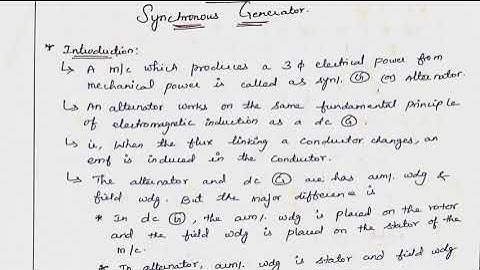 Synchronous Generator.
* Introduction:
↳ A m/c which produces a 3 ϕ electrical power from
mechanical power is called as syn/. Ⓖ (or) Alternator.
↳ An alternator works on the same fundamental principle
of electromagnetic induction as a dc Ⓖ.
↳ ie, When the flux linking a conductor changes, an
emf is induced in the conductor.
↳ The alternator and dc Ⓖ are has arm/. wdg &
field wdg. But the major difference is
* In dc Ⓖ, the arm/. wdg is placed on the rotor
and the field wdg is placed on the stator of the
m/c.
* In alternator, arm/. wdg is stator and field wdg